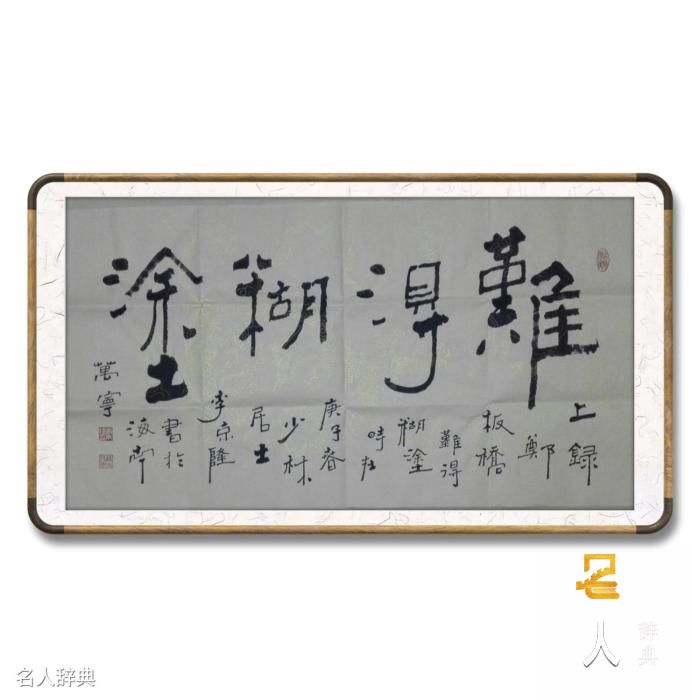 難得糊塗
上録
鄭
板橋
難得
糊塗
時在
庚子春
少林
居士
李京隆
書於
海南
萬寧
名人辞典
名人辞典